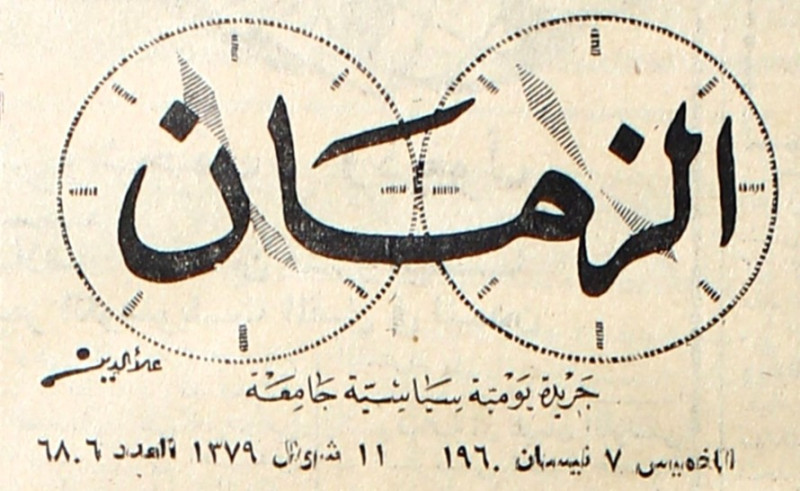 الزمان
علاء الدين
جريدة يومية سياسية جامعة
الخميس ٧ نيسان ١٩٦٠ ١١ شوال ١٣٧٩ العدد ٦٨٠٦